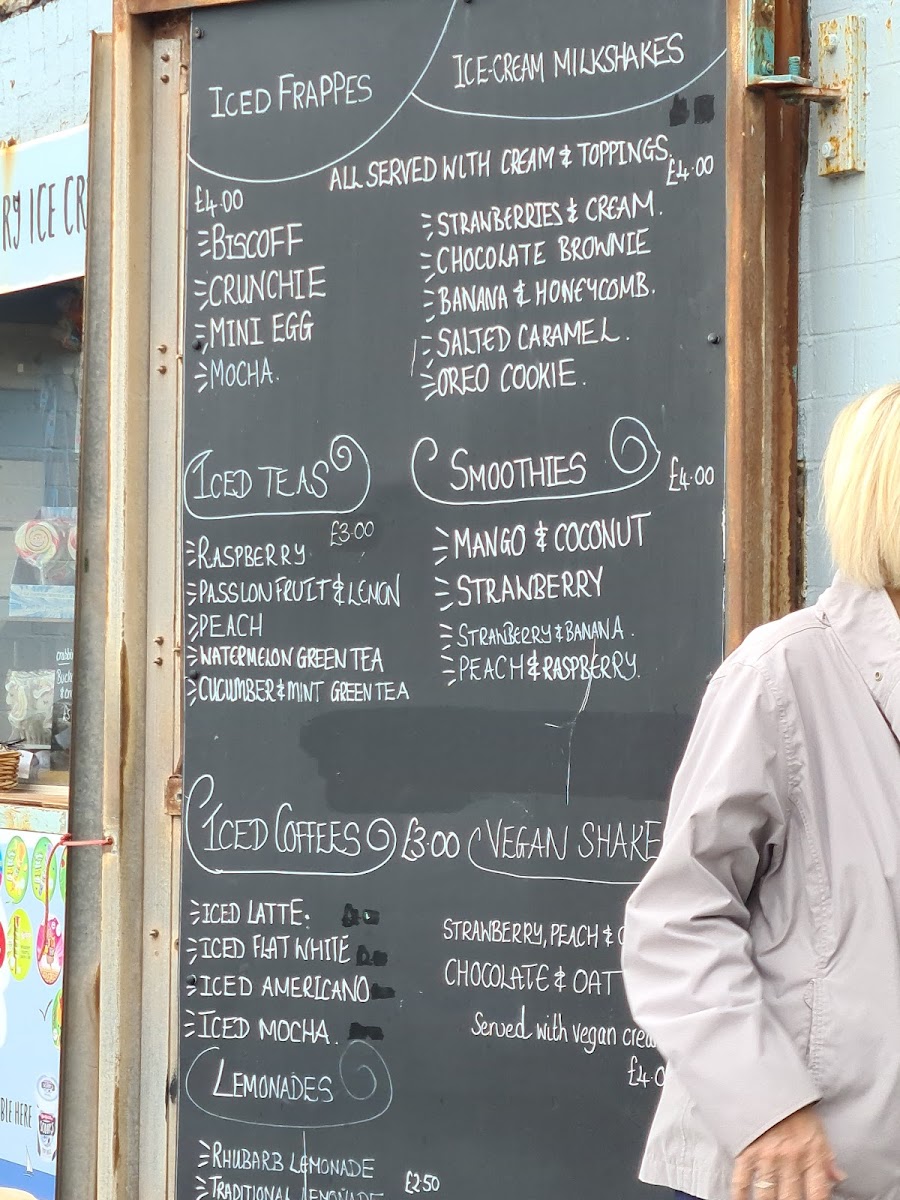 ICED FRAPPES
ICE-CREAM MILKSHAKES
ALL SERVED WITH CREAM & TOPPINGS.
£4.00
£4.00
BISCOFF
CRUNCHIE
MINI EGG
MOCHA.
STRAWBERRIES & CREAM.
CHOCOLATE BROWNIE
BANANA & HONEYCOMB.
SALTED CARAMEL.
OREO COOKIE.
ICED TEAS
£3.00
RASPBERRY
PASSIONFRUIT & LEMON
PEACH
WATERMELON GREEN TEA
CUCUMBER & MINT GREEN TEA
SMOOTHIES
£4.00
MANGO & COCONUT
STRAWBERRY
STRAWBERRY & BANANA.
PEACH & RASPBERRY.
ICED COFFEES £3.00
ICED LATTE.
ICED FLAT WHITE
ICED AMERICANO
ICED MOCHA.
VEGAN SHAKE
STRAWBERRY, PEACH &
CHOCOLATE & OAT
Served with vegan
LEMONADES
RHUBARB LEMONADE
£2.50
TRADITIONAL LEMONADE
RY ICE CR
BLE HERE